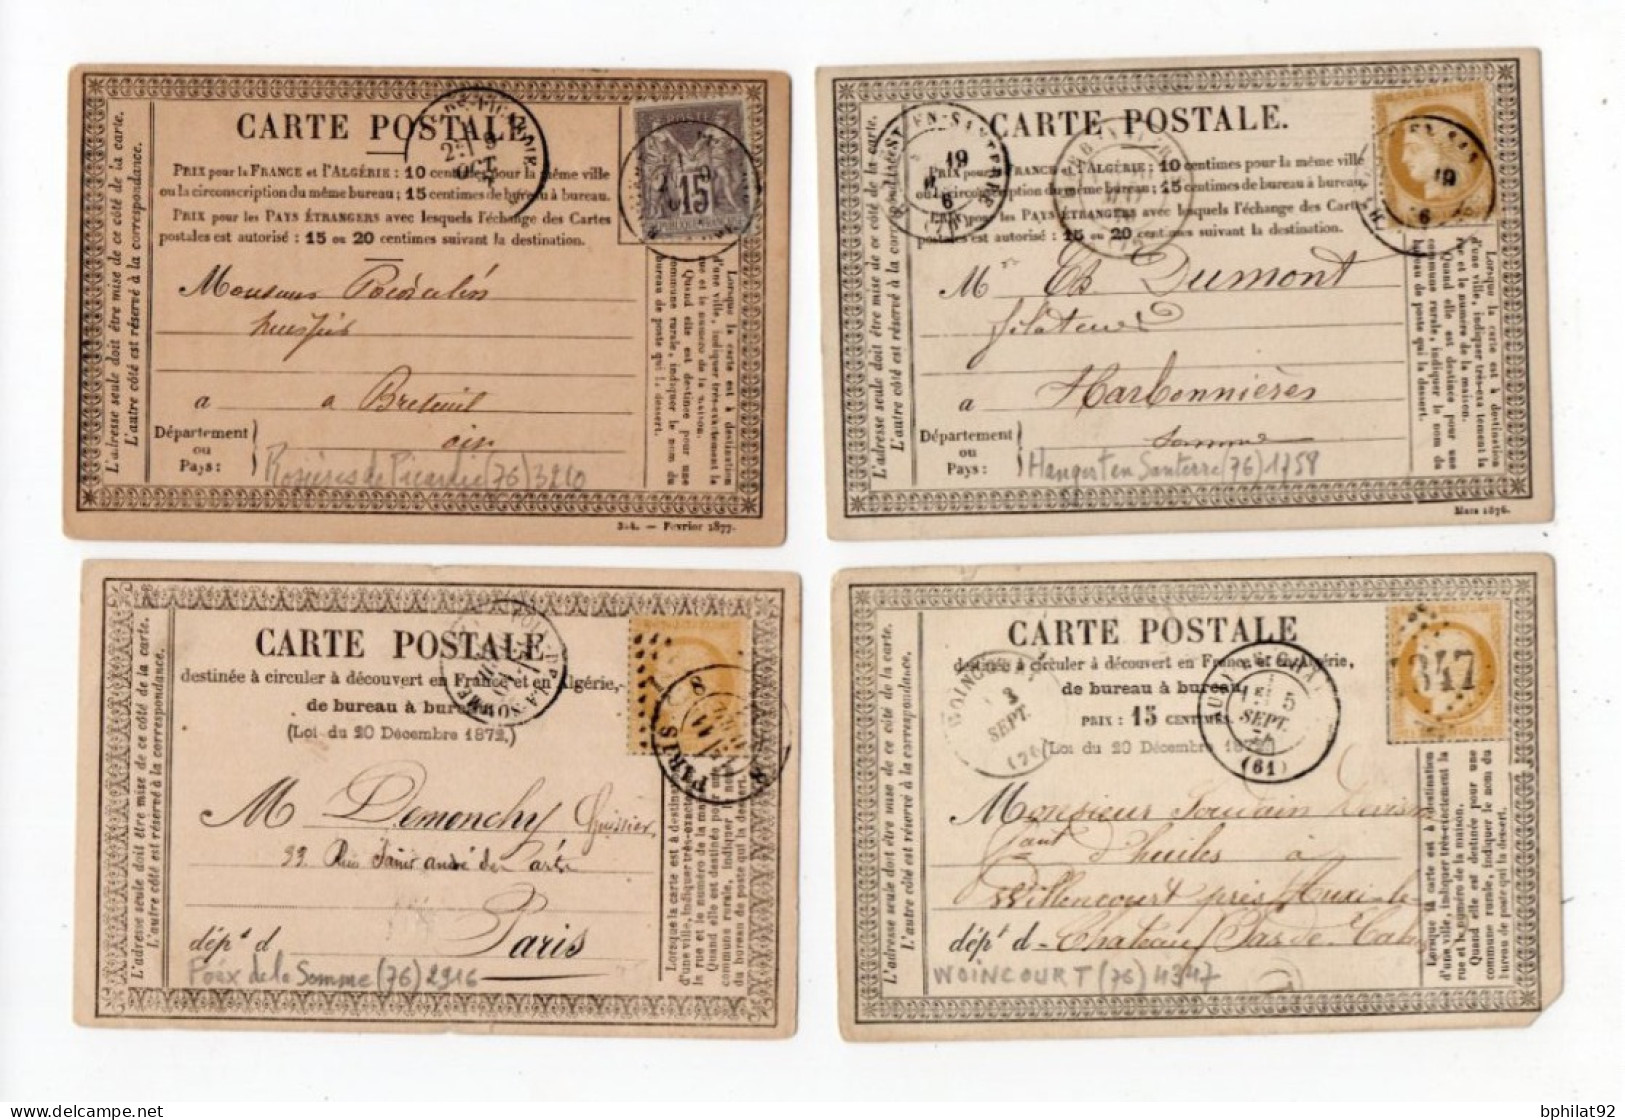 CARTE POSTALE
PRIX pour la FRANCE et l'ALGÉRIE: 10 centimes pour la même ville
ou la circonscription du même bureau; 15 centimes de bureau à bureau.
PRIX pour les PAYS ÉTRANGERS avec lesquels l'échange des Cartes
postales est autorisé: 15 ou 20 centimes suivant la destination.
15
25 OCT
Monsieur
a a Breteuil
Département
ou
Pays:
Oise
Rosières de Picardie (76) 3210
L'adresse seule doit être mise de ce côté de la carte.
L'autre côté est réservé à la correspondance.
Lorsque la carte est à destination
d'une ville, indiquer très-exactement la
rue et le numéro de la maison.
Quand elle est destinée pour une
commune rurale, indiquer le nom du
bureau de poste qui la dessert.
314. — Février 1877.
CARTE POSTALE.
PRIX pour la FRANCE et l'ALGÉRIE: 10 centimes pour la même ville
ou la circonscription du même bureau; 15 centimes de bureau à bureau.
PRIX pour les PAYS ÉTRANGERS avec lesquels l'échange des Cartes
postales est autorisé: 15 ou 20 centimes suivant la destination.
EN-SANTERRE
19
M Ch Dumont
filateur
a Harbonnières
Département
ou
Pays:
Somme
Hangest en Santerre (76) 1758
L'adresse seule doit être mise de ce côté de la carte.
L'autre côté est réservé à la correspondance.
Lorsque la carte est à destination
d'une ville, indiquer très-exactement la
rue et le numéro de la maison.
Quand elle est destinée pour une
commune rurale, indiquer le nom du
bureau de poste qui la dessert.
Mars 1876.
CARTE POSTALE
destinée à circuler à découvert en France et en Algérie,
de bureau à bureau
(Loi du 20 Décembre 1872.)
PARIS
M Demonchy Huissier
Paris
dépt d
Poix de la Somme (76) 2916
L'adresse seule doit être mise de ce côté de la carte.
L'autre côté est réservé à la correspondance.
Lorsque la carte est à destination
d'une ville, indiquer très-exactement la
rue et le numéro de la maison.
Quand elle est destinée pour une
commune rurale, indiquer le nom
du bureau de poste qui la dessert.
CARTE POSTALE
destinée à circuler à découvert en France et en Algérie,
de bureau à bureau
PRIX: 15 CENTIMES.
(Loi du 20 Décembre 1872.)
WOINCOURT
3
SEPT.
5
SEPT.
(61)
347
Monsieur Jourdain
d'huiles à
Willencourt près Auxi-le-
dépt d - Chateau (Pas de Calais
WOINCOURT (76) 4347
L'adresse seule doit être mise de ce côté de la carte.
L'autre côté est réservé à la correspondance.
Lorsque la carte est à destination
d'une ville, indiquer très-exactement la
rue et le numéro de la maison.
Quand elle est destinée pour une
commune rurale, indiquer le nom du
bureau de poste qui la dessert.
bphilat92